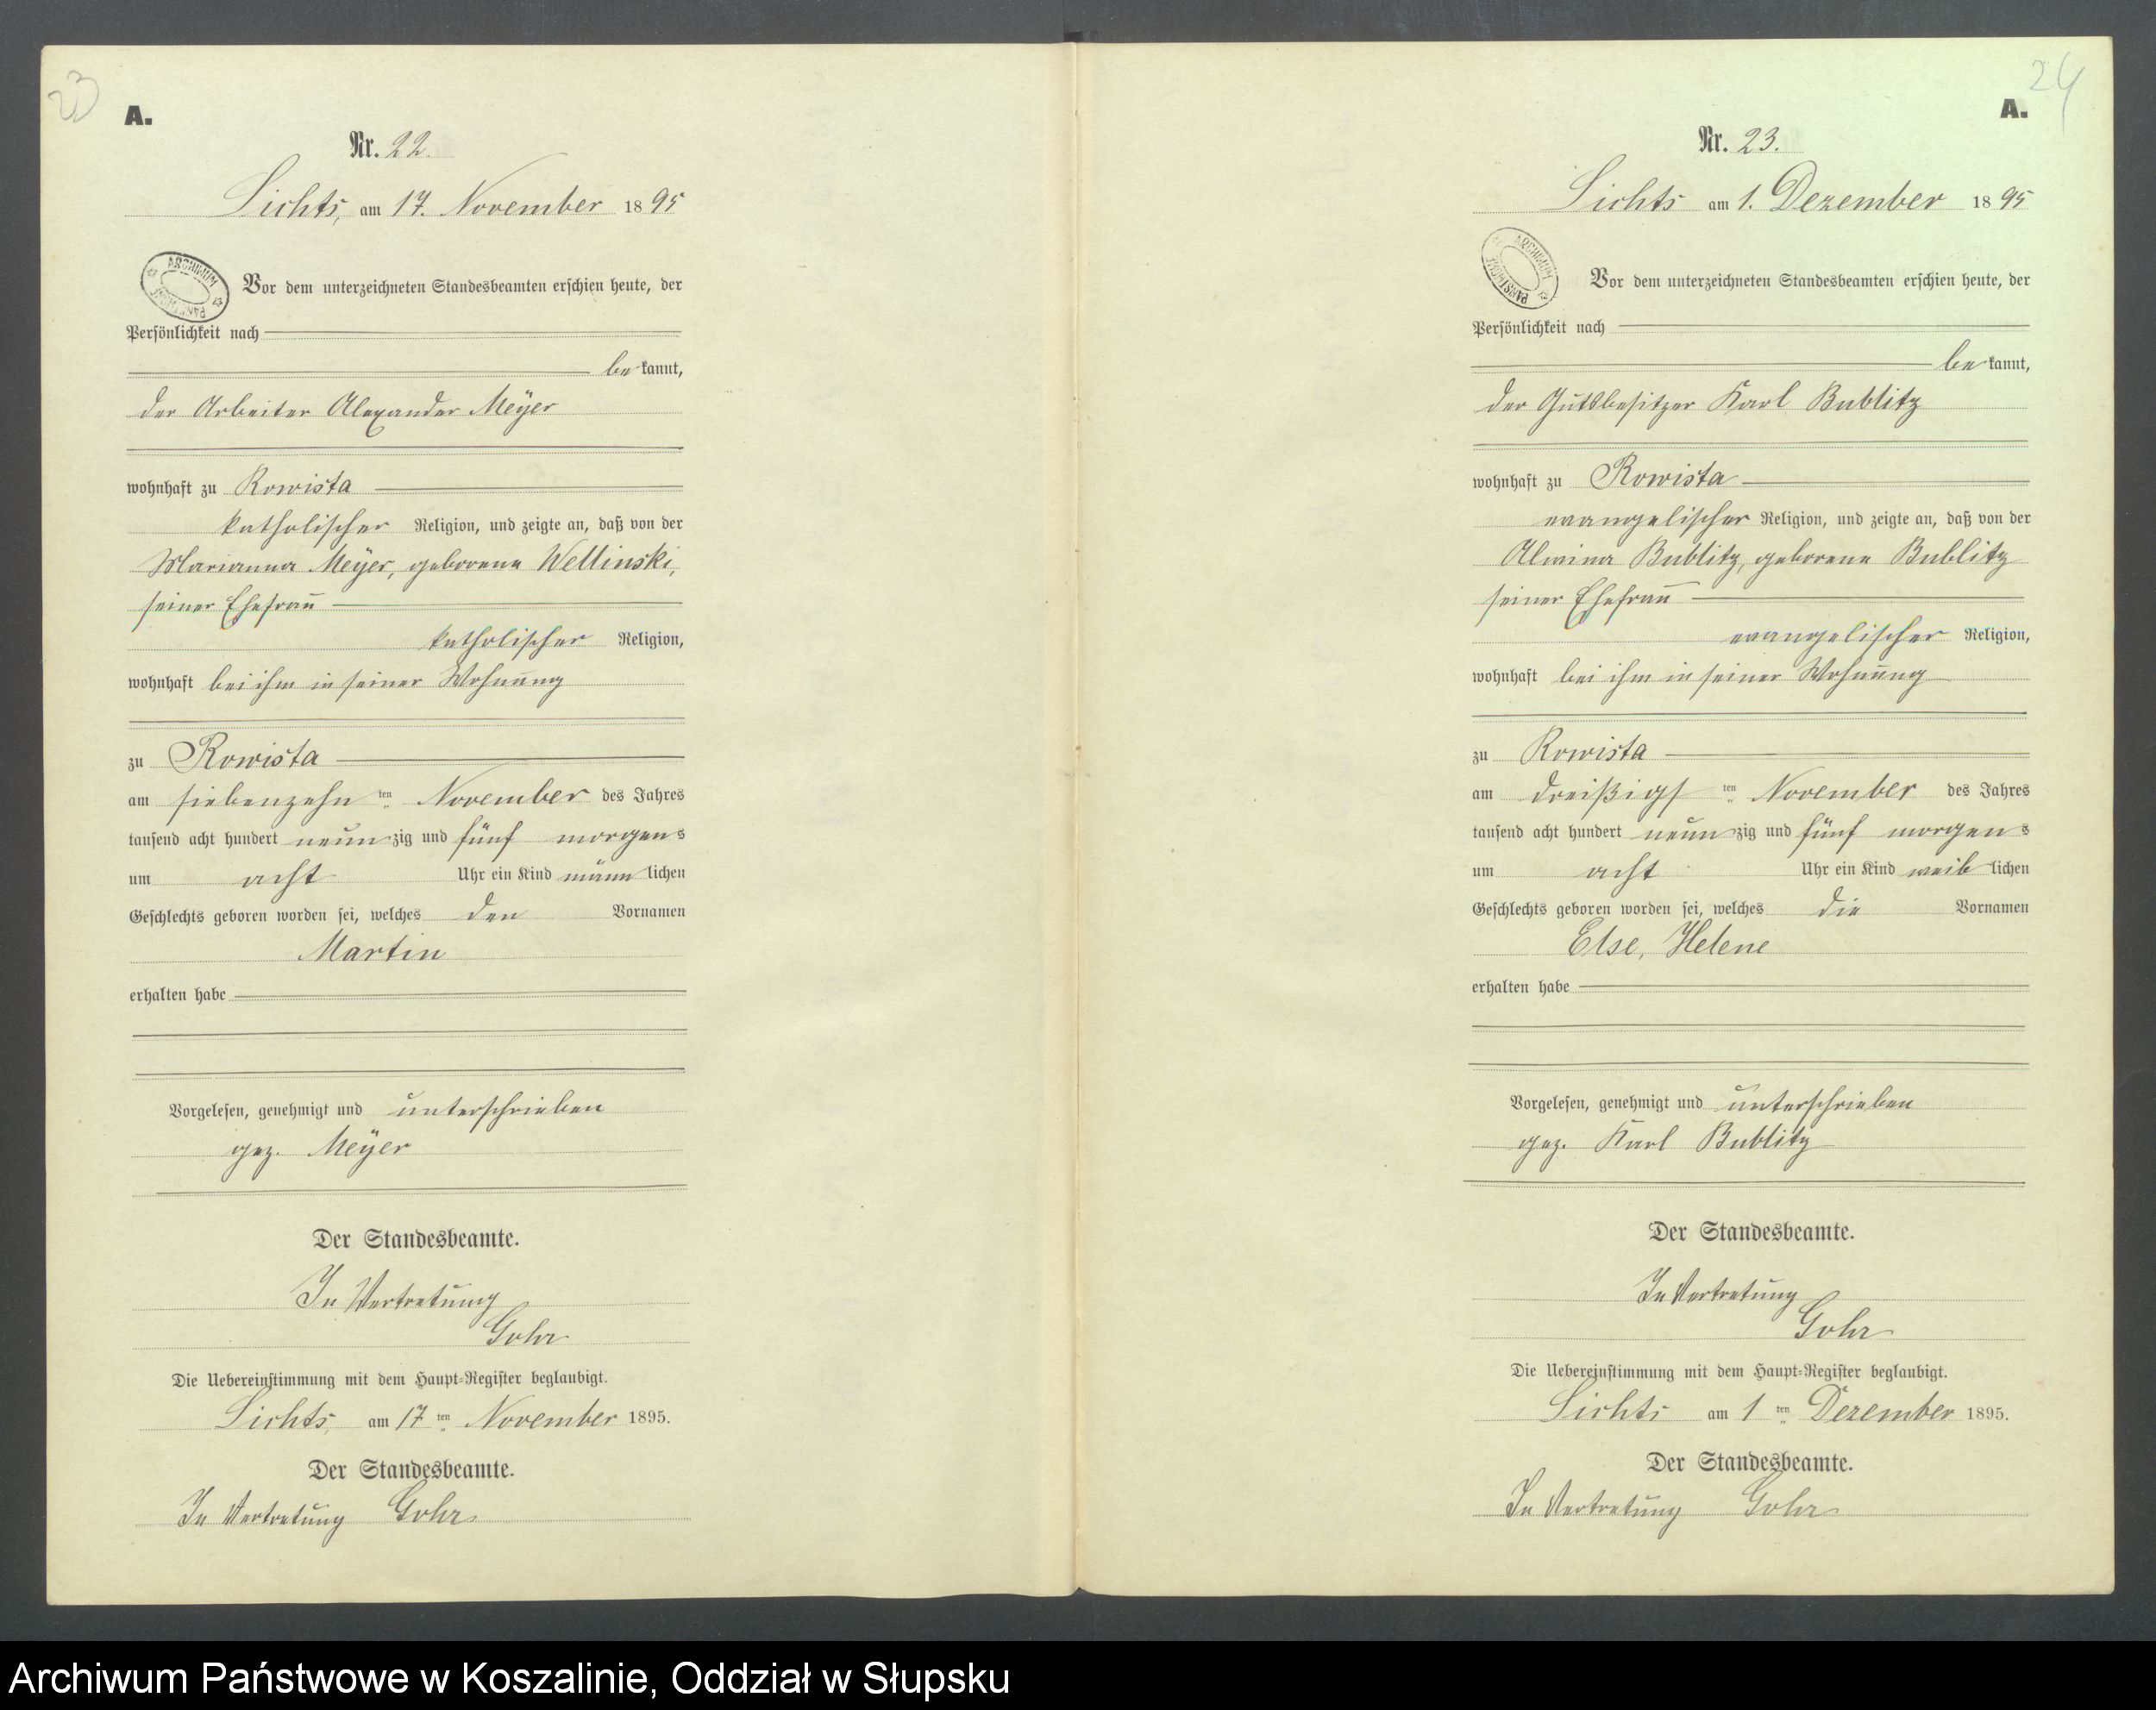 23
A.
Nr. 22.
Lichts, am 17. November 1895
ARCHIWUM PAŃSTWOWE
Vor dem unterzeichneten Standesbeamten erschien heute, der
Persönlichkeit nach
bekannt,
der Arbeiter Alexander Meÿer
wohnhaft zu Kowista
katholischer Religion, und zeigte an, daß von der
Marianna Meÿer, geborene Wellinski,
seiner Ehefrau
katholischer Religion,
wohnhaft bei ihm in seiner Wohnung
zu Rowista
am siebenzehnten November des Jahres
tausend acht hundert neunzig und fünf morgens
um acht Uhr ein Kind männlichen
Geschlechts geboren worden sei, welches den Vornamen
Martin
erhalten habe
Vorgelesen, genehmigt und unterschrieben
gez. Meÿer
Der Standesbeamte.
In Vertretung
Gohr
Die Uebereinstimmung mit dem Haupt-Register beglaubigt.
Lichts, am 17ten November 1895.
Der Standesbeamte.
In Vertretung Gohr
24
A.
Nr. 23.
Lichts am 1. Dezember 1895
ARCHIWUM PAŃSTWOWE
Vor dem unterzeichneten Standesbeamten erschien heute, der
Persönlichkeit nach
bekannt,
der Gutsbesitzer Karl Bublitz
wohnhaft zu Rowista
evangelischer Religion, und zeigte an, daß von der
Alwina Bublitz, geborene Bublitz
seiner Ehefrau
evangelischer Religion,
wohnhaft bei ihm in seiner Wohnung
zu Rowista
am dreißigsten November des Jahres
tausend acht hundert neunzig und fünf morgens
um acht Uhr ein Kind weiblichen
Geschlechts geboren worden sei, welches die Vornamen
Else, Helene
erhalten habe
Vorgelesen, genehmigt und unterschrieben
gez. Karl Bublitz
Der Standesbeamte.
In Vertretung
Gohr
Die Uebereinstimmung mit dem Haupt-Register beglaubigt.
Lichts am 1ten Dezember 1895.
Der Standesbeamte.
In Vertretung Gohr
Archiwum Państwowe w Koszalinie, Oddział w Słupsku